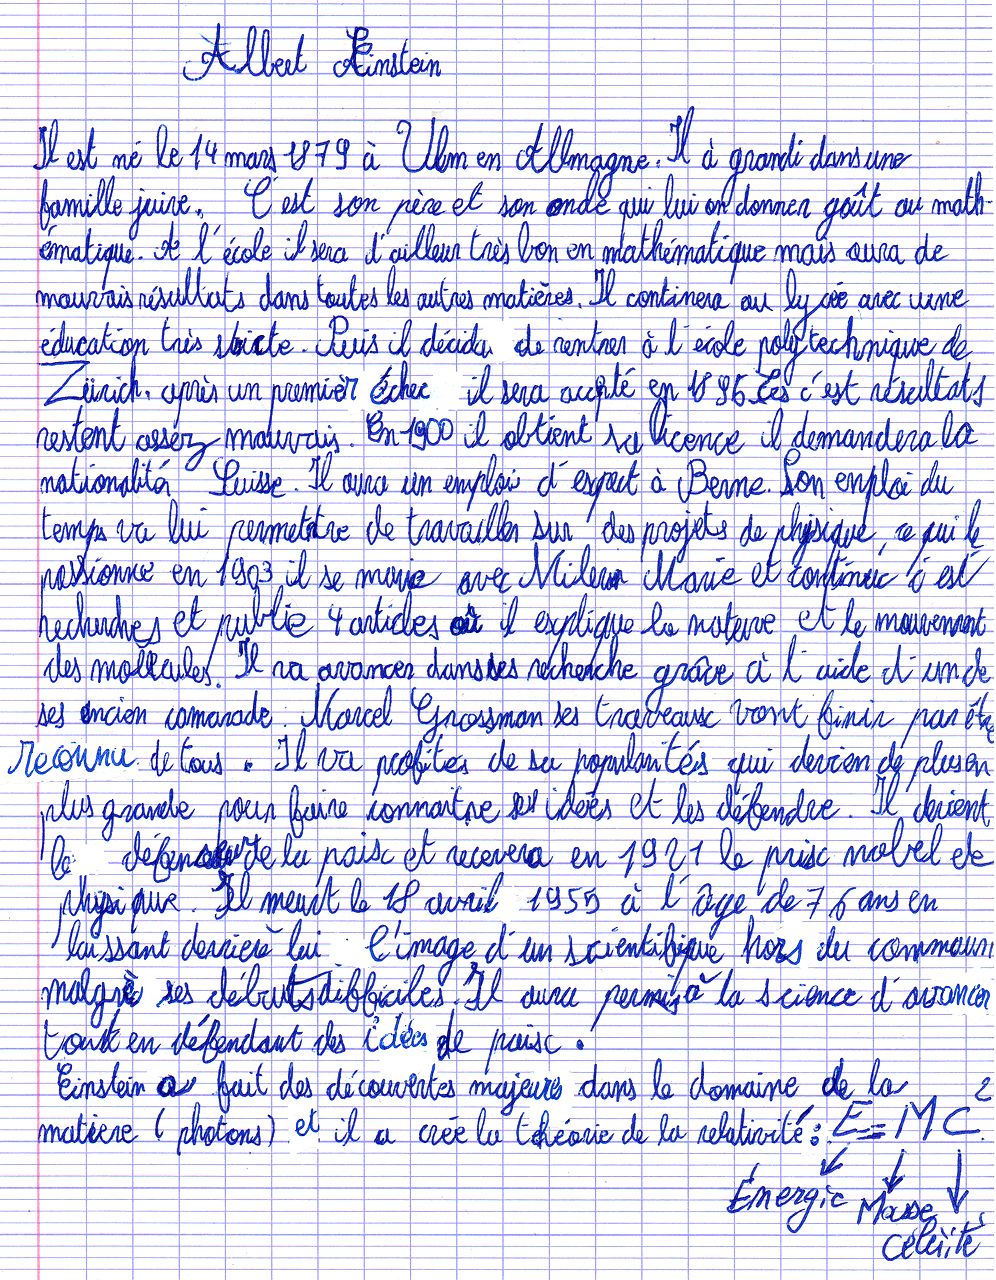 Albert Einstein
Il est né le 14 mars 1879 à Ulm en Allmagne. Il à grandi dans une
famille juive. C'est son père et son oncle qui lui on donner goût au math-
ématique. A l'école il sera d'ailleur très bon en mathématique mais aura de
mauvais résultats dans toutes les autres matières. Il continera au lycée avec une
éducation très stricte. Puis il décida de rentrer à l'école polytechnique de
Zürich. après un premier échec il sera accpté en 1896 Ces c'est résultats
restent assez mauvais. En 1900 il obtient sa licence il demandera la
nationalités Suisse. Il aura un emploi d'expert à Berne. Son emploi du
temps va lui permettre de travailler sur des projets de physique, ce qui le
passionne en 1903 il se marie avec Mileva Marie et continue c'est
recherches et publie 4 articles où il explique la nature et le mouvement
des molécules. Il va avancer dans ses recherche grâce à l'aide d'un de
ses ancien camarade : Marcel Grossman ses traveaux vont finir par être
reconnu de tous. Il va profites de sa popularités qui devien de plus en
plus grande pour faire connaitre ses idées et les défendre. Il devient
le défenseur de la paix et recevera en 1921 le prix nobel de
physique. Il meurt le 18 avril 1955 à l'âge de 76 ans en
laissant derrière lui l'image d'un scientifique hors du commun
malgré ses débuts difficiles. Il aura permis à la science d'avancer
tout en défendant des idées de paix.
Einstein a fait des découvertes majeures dans le domaine de la
matière (photons) et il a crée la théorie de la relativité : E=MC²
Énergie Masse
Célérité